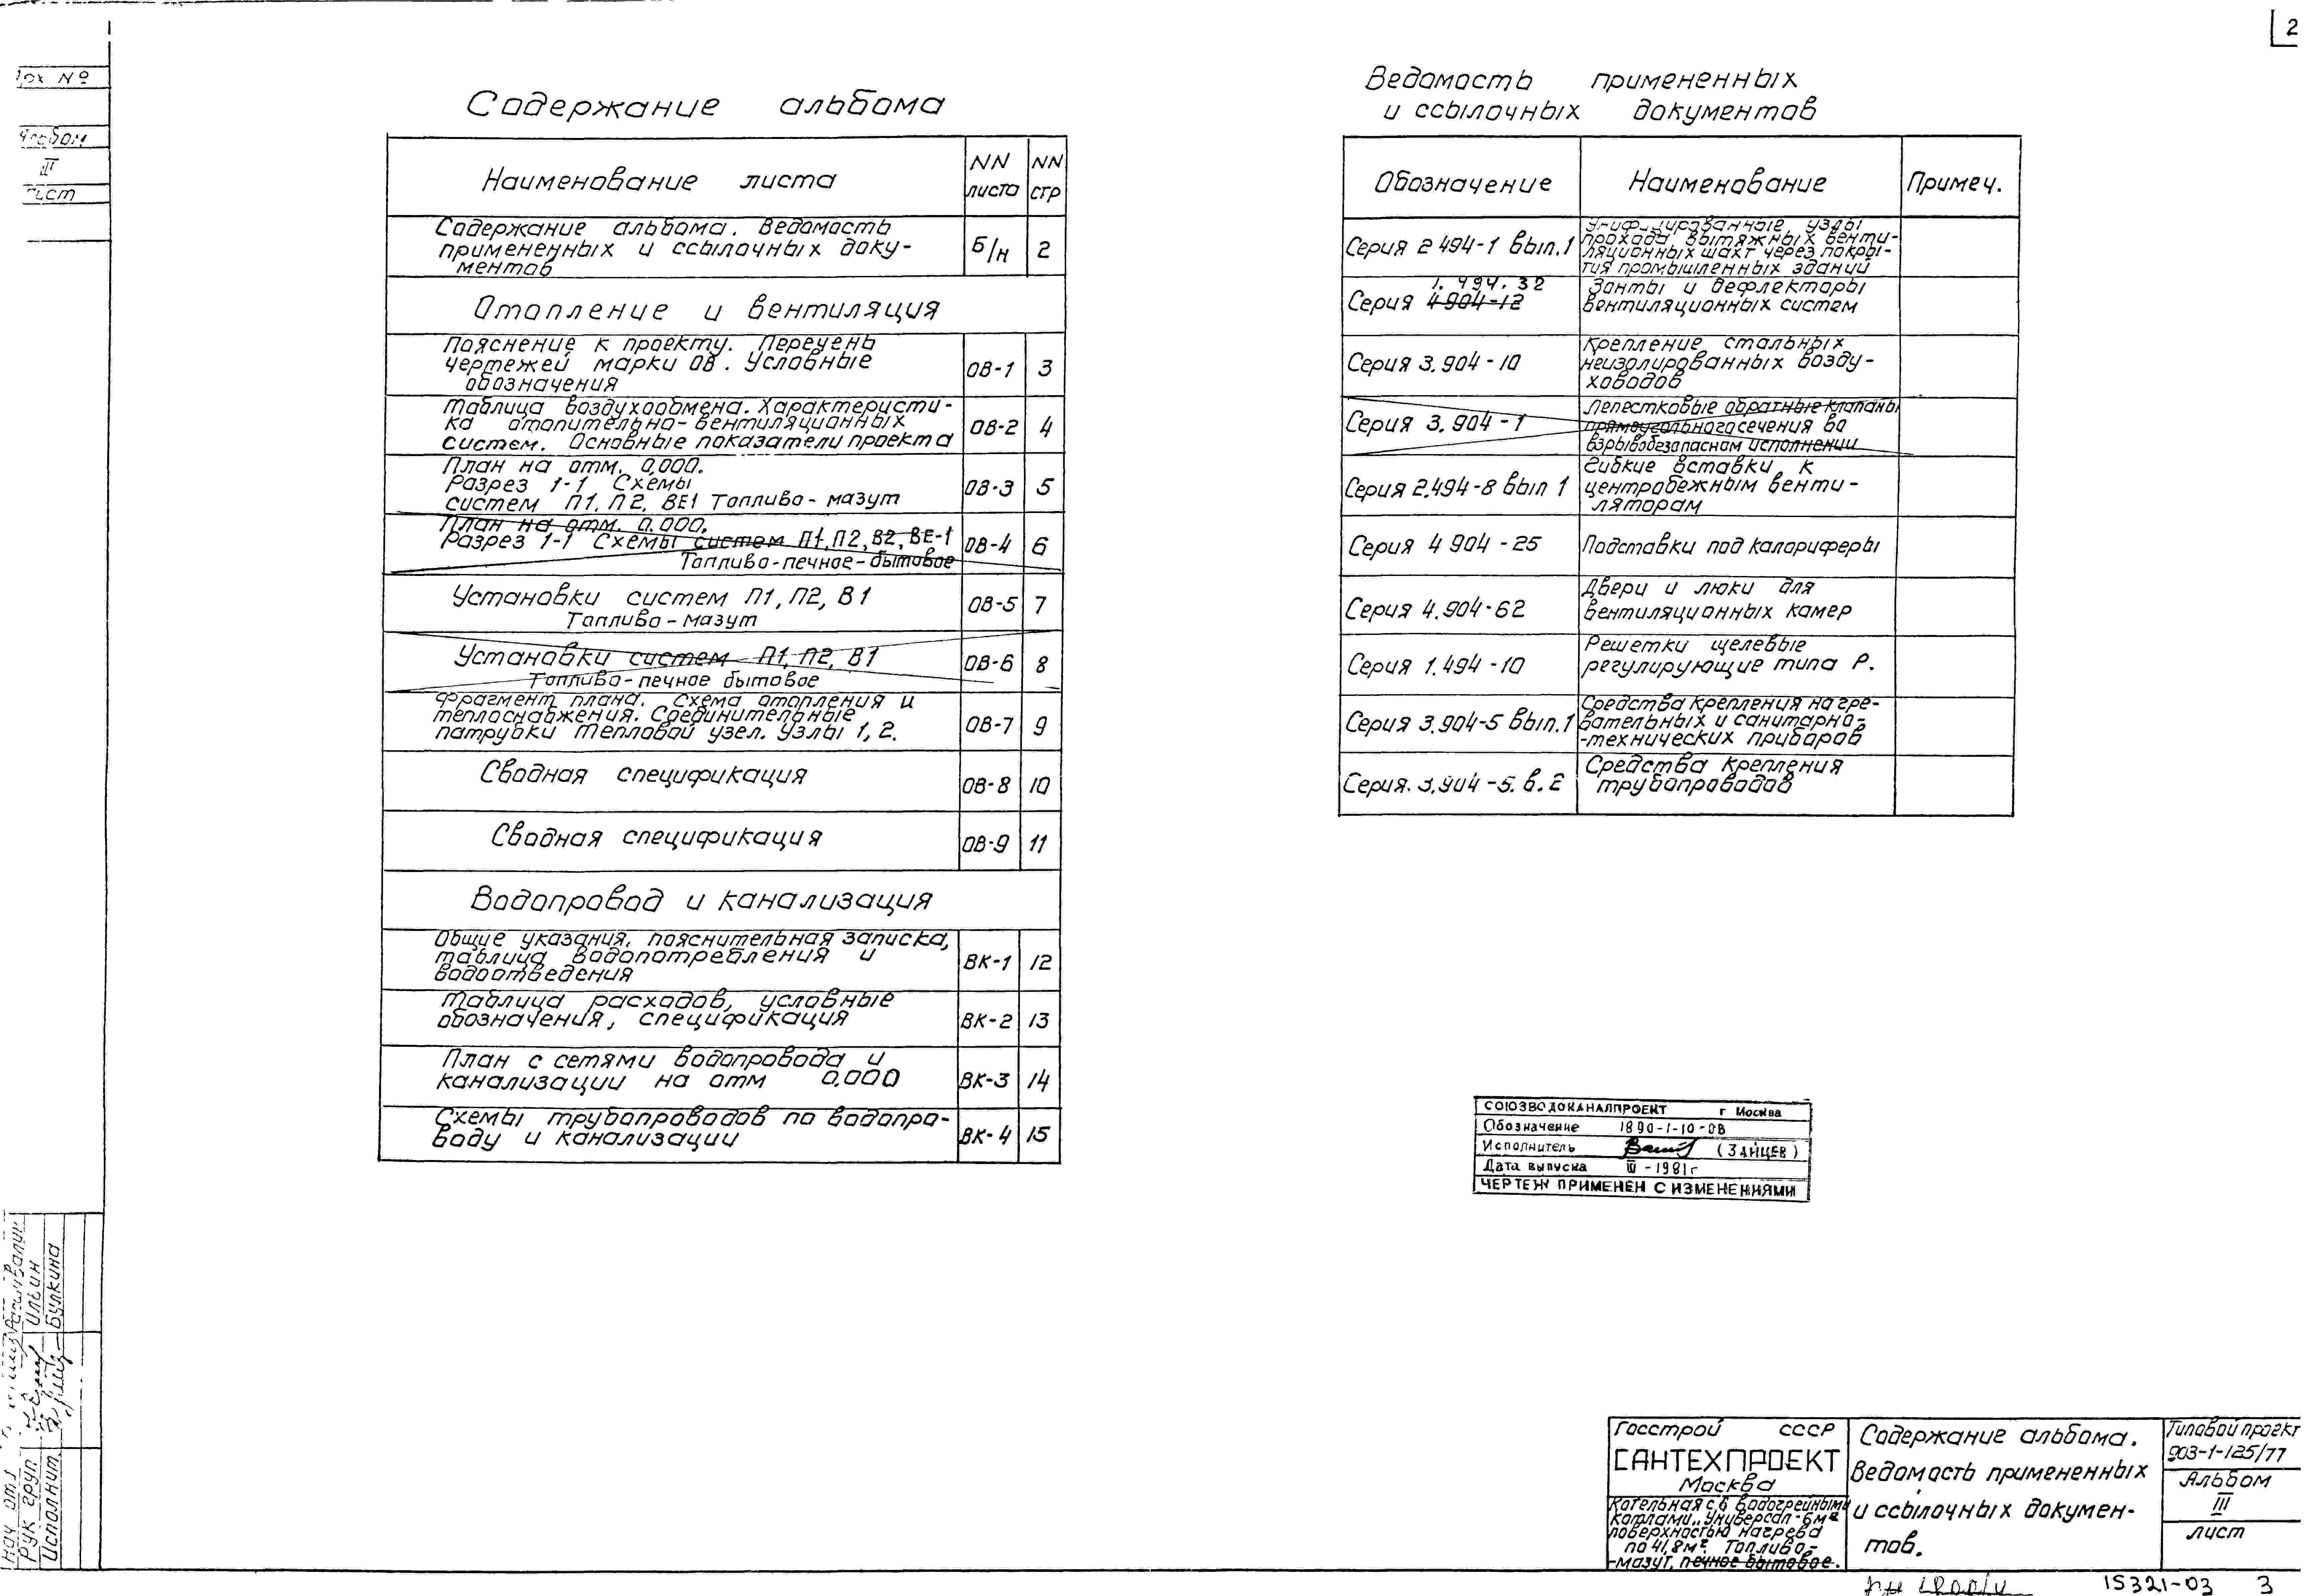 2
Альбом
III
Содержание альбома
Наименование листа
NN листа
NN стр
Содержание альбома. Ведомость
примененных и ссылочных доку-
ментов
Б/н 2
Отопление и вентиляция
Пояснение к проекту. Перечень
чертежей марки ОВ. Условные
обозначения
ОВ-1 3
Таблица воздухообмена. Характеристи-
ка отопительно-вентиляционных
систем. Основные показатели проекта
ОВ-2 4
План на отм. 0,000.
Разрез 1-1 Схемы
систем П1, П2, ВЕ1 Топливо-мазут
ОВ-3 5
План на отм. 0,000.
Разрез 1-1 Схемы систем П1, П2, В2, ВЕ-1
Топливо-печное-бытовое
ОВ-4 6
Установки систем П1, П2, В1
Топливо-мазут
ОВ-5 7
Установки систем П1, П2, В1
Топливо-печное бытовое
ОВ-6 8
Фрагмент плана. Схема отопления и
теплоснабжения. Соединительные
патрубки Тепловой узел. Узлы 1, 2.
ОВ-7 9
Сводная спецификация
ОВ-8 10
Сводная спецификация
ОВ-9 11
Водопровод и канализация
Общие указания, пояснительная записка,
таблица водопотребления и
водоотведения
ВК-1 12
Таблица расходов, условные
обозначения, спецификация
ВК-2 13
План с сетями водопровода и
канализации на отм 0,000
ВК-3 14
Схемы трубопроводов по водопро-
воду и канализации
ВК-4 15
Ведомость примененных
и ссылочных документов
Обозначение Наименование Примеч.
Серия 2 494-1 вып.1
Унифицированные узлы
прохода вытяжных венти-
ляционных шахт через покры-
тия промышленных зданий
1. 494. 32
Серия 4 904-12
Зонты и дефлекторы
вентиляционных систем
Серия 3.904-10
Крепление стальных
неизолированных возду-
ховодов
Серия 3.904-1
Лепестковые обратные клапаны
прямоугольного сечения во
взрывобезопасном исполнении
Серия 2.494-8 вып 1
Гибкие вставки к
центробежным венти-
ляторам
Серия 4 904-25
Подставки под калориферы
Серия 4.904-62
Двери и люки для
вентиляционных камер
Серия 1.494-10
Решетки щелевые
регулирующие типа Р.
Серия 3.904-5 вып.1
Средства крепления нагре-
вательных и санитарно-
-технических приборов
Серия. 3.904-5. в. 2
Средства крепления
трубопроводов
СОЮЗВОДОКАНАЛПРОЕКТ г Москва
Обозначение 1890-1-10-ОВ
Исполнитель (ЗАЙЦЕВ)
Дата выпуска III-1981г
ЧЕРТЕЖ ПРИМЕНЕН С ИЗМЕНЕНИЯМИ
Госстрой СССР
САНТЕХПРОЕКТ
Москва
Котельная с 6 водогрейными
котлами „Универсал-6м"
поверхностью нагрева
по 41,8м². Топливо-
-мазут, печное бытовое.
Содержание альбома.
Ведомость примененных
и ссылочных докумен-
тов.
Типовой проект
903-1-125/77
Альбом
III
лист
15321-03 3
Ильин
Булкина
Рук груп
Исполнит.